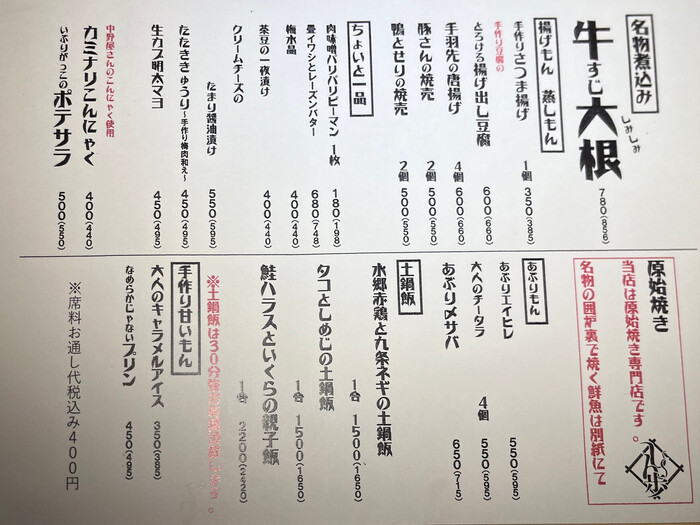 名物煮込み
牛すじ大根
しみしみ
780(858)
揚げもん 蒸しもん
手作りさつま揚げ 1個 350(385)
手作り豆腐の
とろける揚げ出し豆腐 600(660)
手羽先の唐揚げ 4個 600(660)
豚さんの焼売 2個 500(550)
鴨とせりの焼売 2個 500(550)
ちょいと一品
肉味噌パリパリピーマン 1枚 180(198)
畳イワシとレーズンバター 680(748)
梅水晶 400(440)
茶豆の一夜漬け 400(440)
クリームチーズの
たまり醤油漬け 550(595)
たたききゅうり〜手作り梅肉和え〜 450(495)
生カブ明太マヨ 450(495)
中野屋さんのこんにゃく使用
カミナリこんにゃく 400(440)
いぶりがっこのポテサラ 500(550)
原始焼き
当店は原始焼き専門店です。
名物の囲炉裏で焼く鮮魚は別紙にて
あぶりもん
あぶりエイヒレ 550(595)
大人のチータラ 4個 550(595)
あぶり〆サバ 650(715)
土鍋飯
水郷赤鶏と九条ネギの土鍋飯 1合 1500(1650)
タコとしめじの土鍋飯 1合 1500(1650)
鮭ハラスといくらの親子飯 1合 2200(2420)
※土鍋飯は30分
手作り甘いもん
大人のキャラメルアイス 350(385)
なめらかじゃないプリン 450(495)
※席料お通し代税込み400円